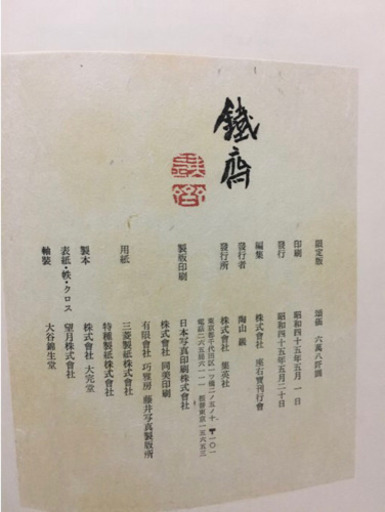 鐵斎
限定版　頒価 六萬八阡圓
印刷　昭和四十五年五月 一 日
発行　昭和四十五年五月二十日
編集　株式會社 座右寶刊行會
発行者　陶山 巌
発行所　株式會社 集英社
東京都千代田区一ツ橋二ノ五ノ十 〒一〇一
製版印刷　日本写真印刷株式會社
株式會社 同美印刷
有限會社 巧雅房 藤井写真製版所
用紙　三菱製紙株式會社
特種製紙株式會社
製本　株式會社 大完堂
表紙・帙・クロス　望月株式會社
軸装　大谷錦生堂